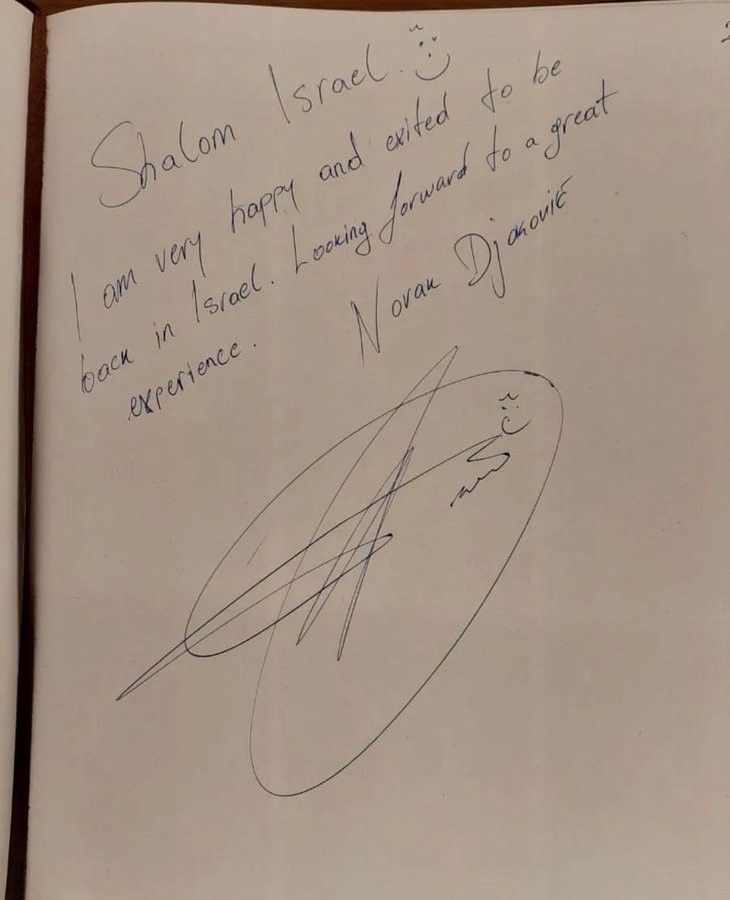 Shalom Israel.
I am very happy and exited to be
back in Israel. Looking forward to a great
experience.
Novak Djoković